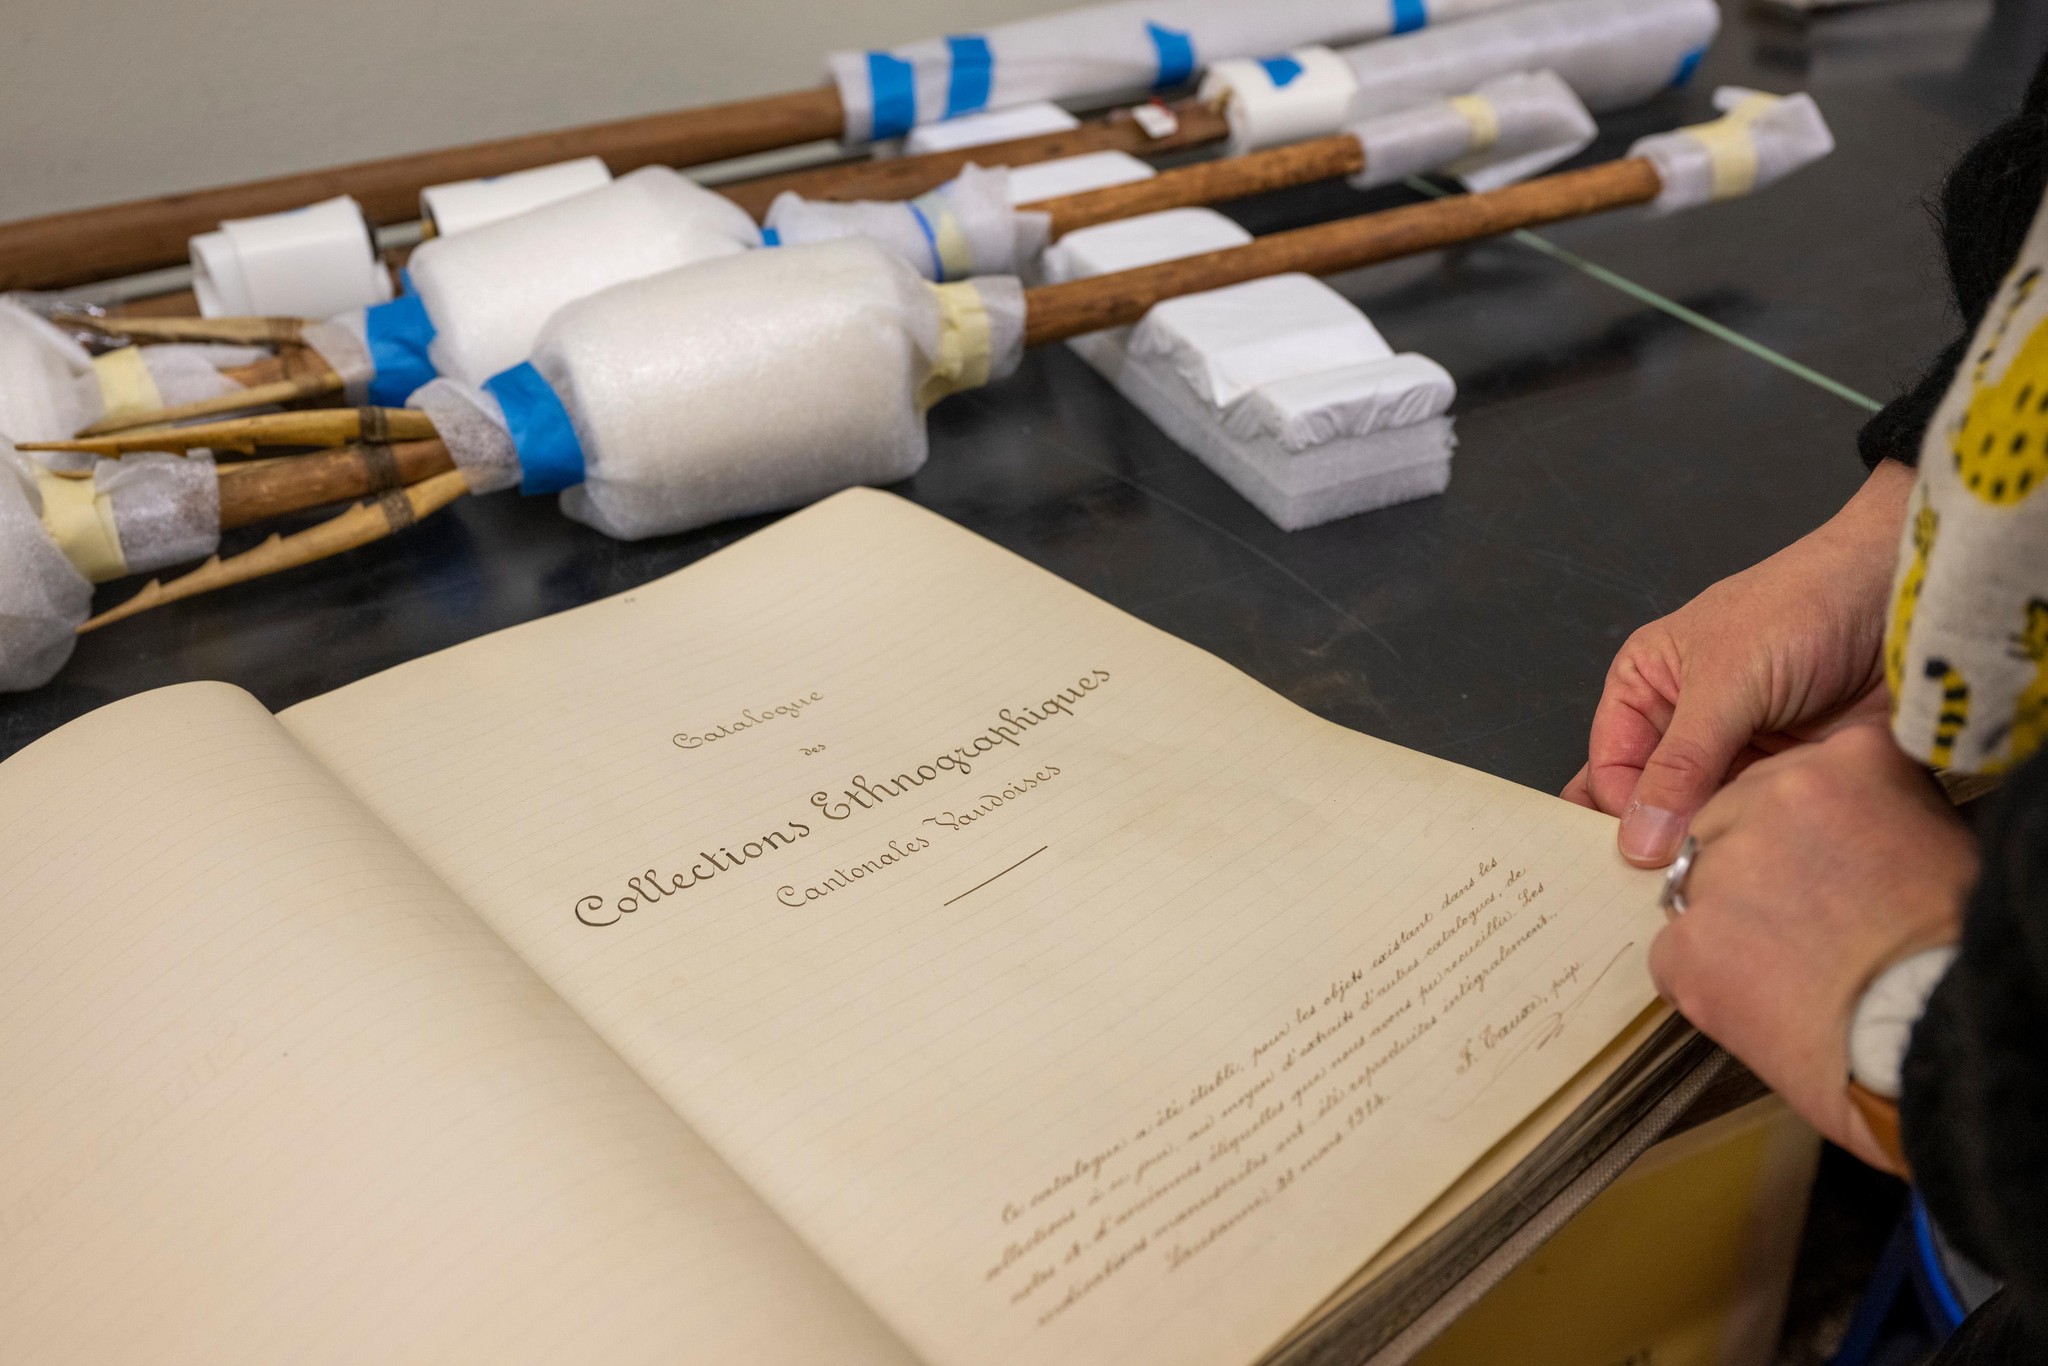 Catalogue
des
Collections Ethnographiques
Cantonales Vaudoises
Ce catalogue a été établi, pour les objets existant dans les
collections à ce jour, au moyen d'extraits d'autres catalogues, de
notes et d'anciennes étiquettes que nous avons pu recueillir. Les
indications manuscrites ont été reproduites intégralement.
Lausanne, mars 1914.
F. Tauxe, prép.